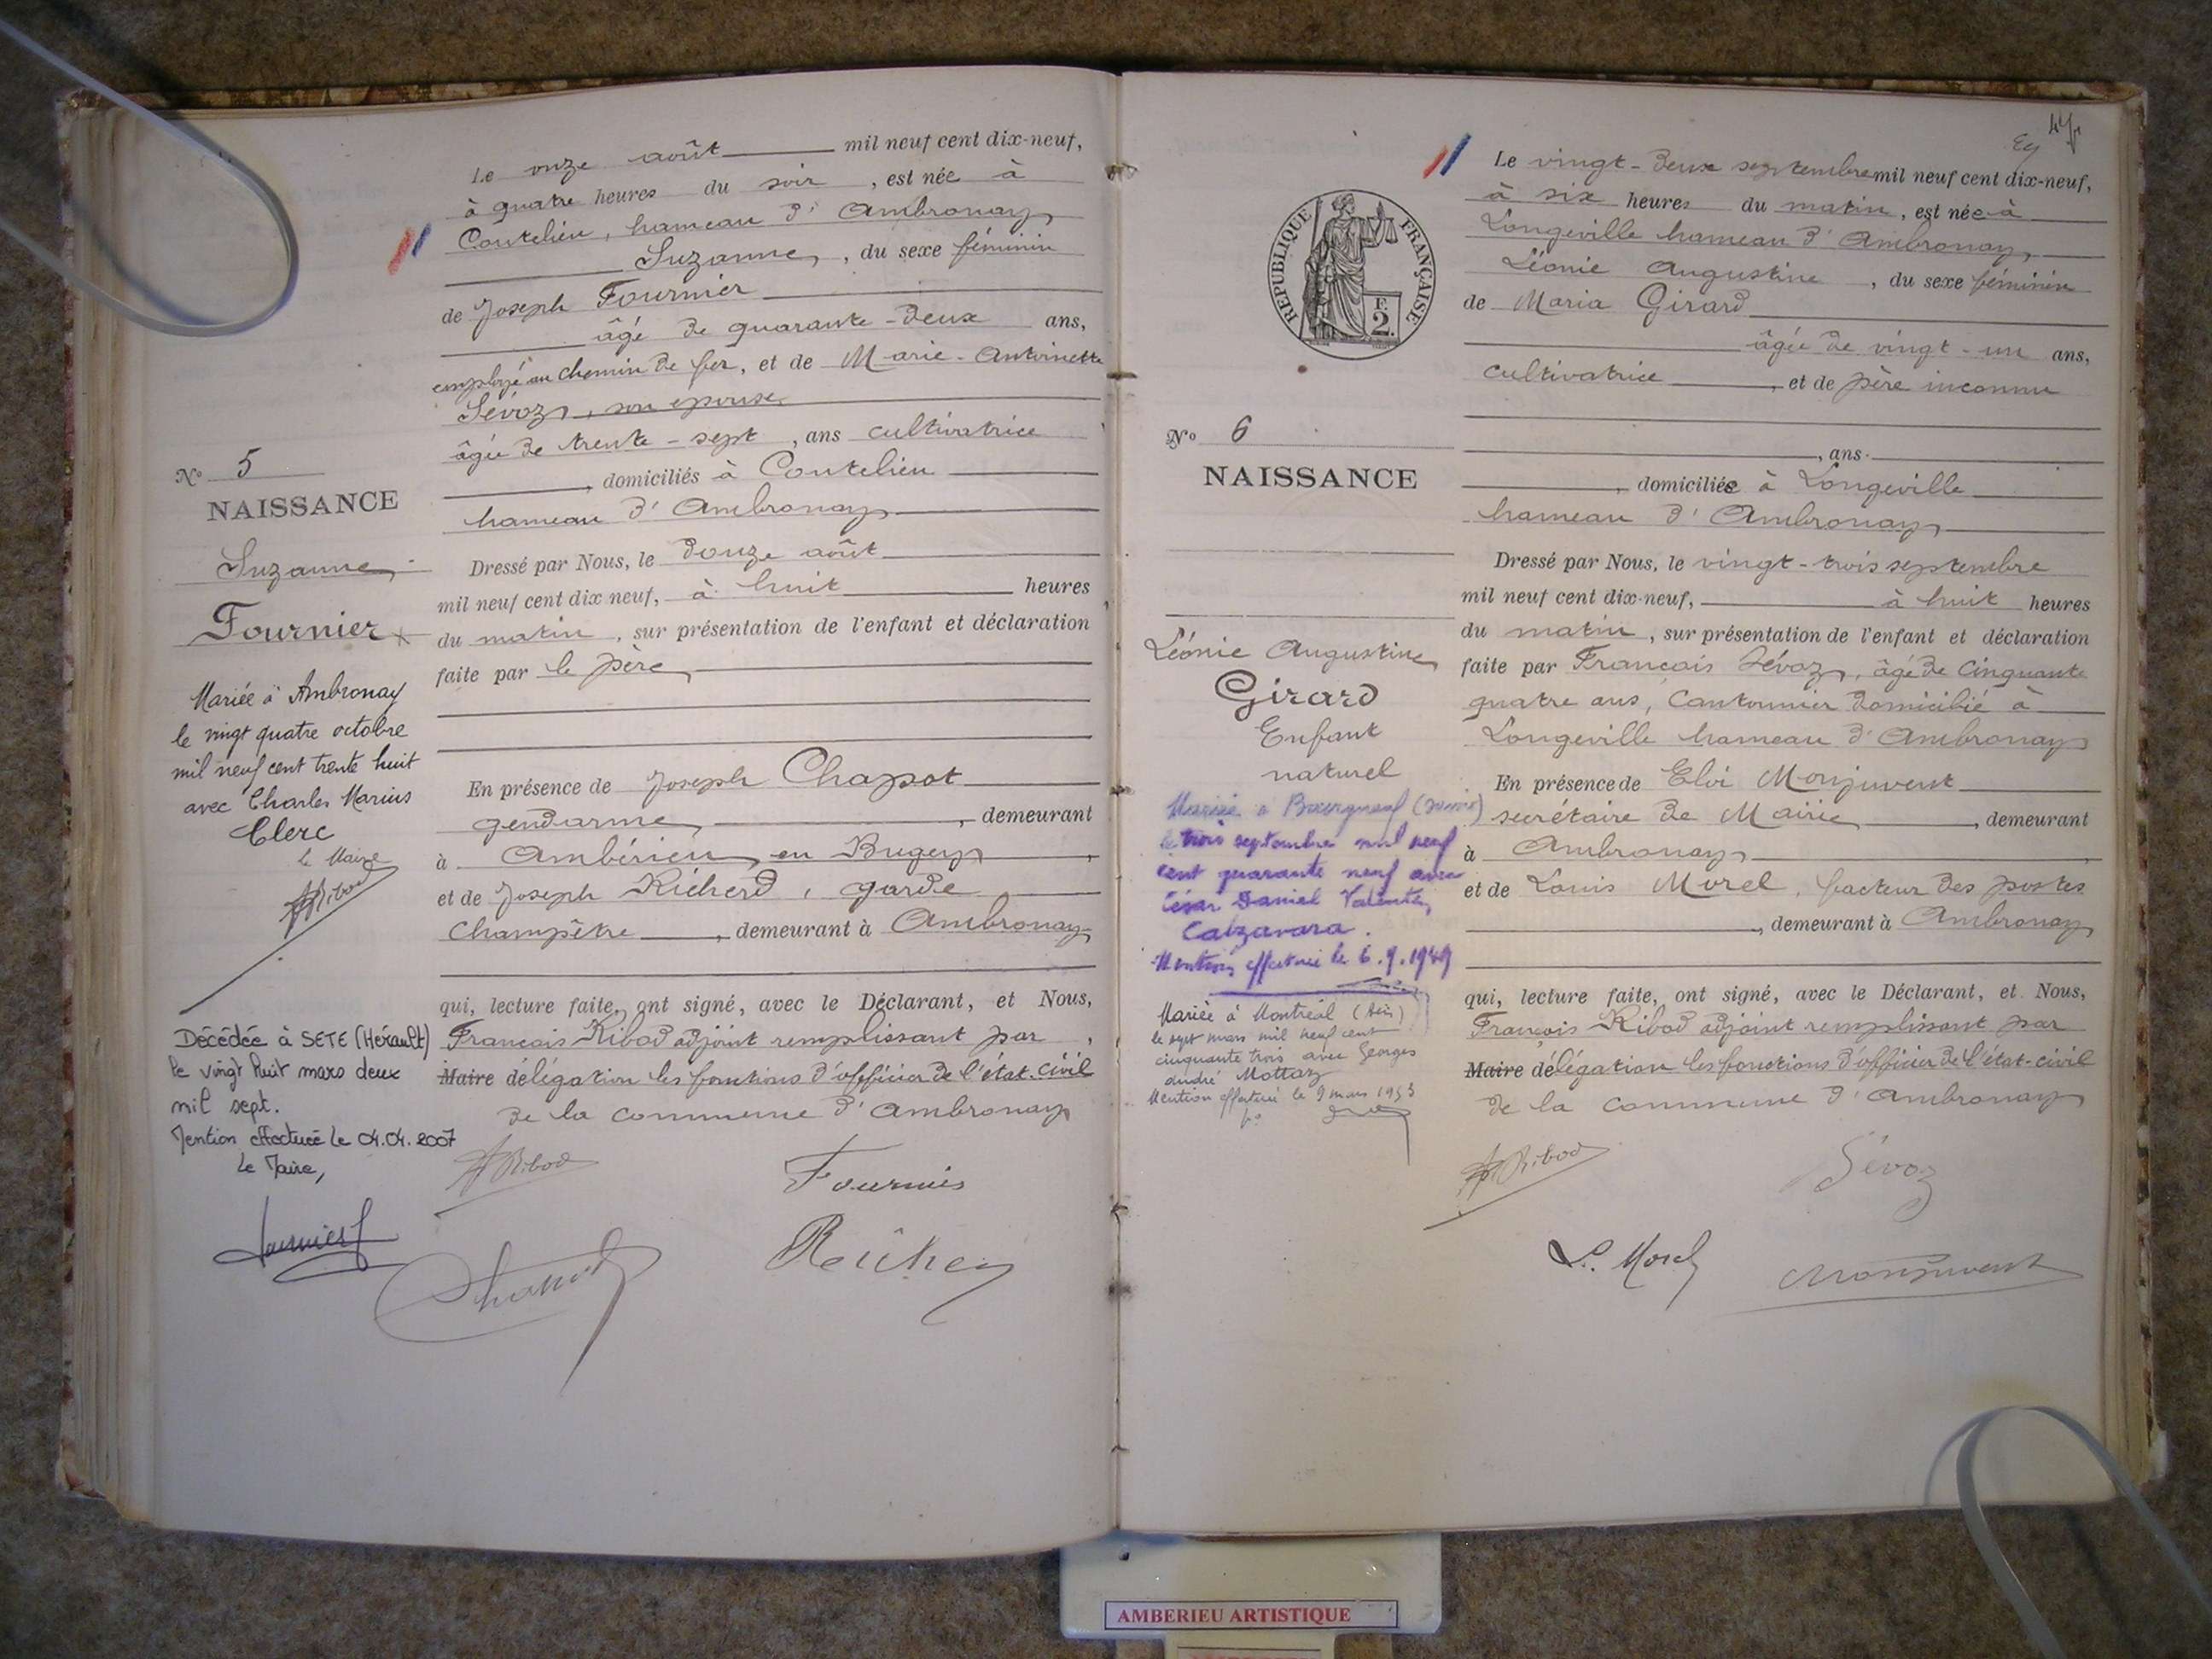 Le onze août mil neuf cent dix-neuf,
à quatre heures du soir, est née à
Coutelieu, hameau d'Ambronay
Suzanne, du sexe féminin
de Joseph Fournier
âgé de quarante-deux ans,
employé au chemin de fer, et de Marie-Antoinette
Sévoz, son épouse,
âgée de trente-sept, ans cultivatrice
, domiciliés à Coutelieu
hameau d'Ambronay
Dressé par Nous, le douze août
mil neuf cent dix neuf, à huit heures
du matin, sur présentation de l'enfant et déclaration
faite par le père
En présence de Joseph Chapot
gendarme, demeurant
à Ambérieu en Bugey,
et de Joseph Richerd, garde
champêtre, demeurant à Ambronay
qui, lecture faite, ont signé, avec le Déclarant, et Nous,
François Ribod adjoint remplissant par
Maire délégation les fonctions d'officier de l'état-civil
de la commune d'Ambronay
Ribod
Fournier
Chapot
Nº 5
NAISSANCE
Suzanne
Fournier
Mariée à Ambronay
le vingt quatre octobre
mil neuf cent trente huit
avec Charles Marius
Clerc
le Maire
Ribod
Décédée à SETE (Hérault)
le vingt huit mars deux
mil sept.
Mention effectuée le 04.04.2007
Le Maire,
Le vingt-deux septembre mil neuf cent dix-neuf,
à six heures du matin, est née à
Longeville hameau d'Ambronay,
Léonie Augustine, du sexe féminin
de Maria Girard
âgée de vingt-un ans,
cultivatrice, et de père inconnu
, ans
, domiciliée à Longeville
hameau d'Ambronay
Dressé par Nous, le vingt-trois septembre
mil neuf cent dix-neuf, à huit heures
du matin, sur présentation de l'enfant et déclaration
faite par François Sévoz, âgé de cinquante
quatre ans, cantonnier domicilié à
Longeville hameau d'Ambronay
En présence de Eloi Monjuvent
secrétaire de Mairie, demeurant
à Ambronay,
et de Louis Morel, facteur des postes
, demeurant à Ambronay
qui, lecture faite, ont signé, avec le Déclarant, et Nous,
François Ribod adjoint remplissant par
Maire délégation les fonctions d'officier de l'état-civil
de la commune d'Ambronay
Ribod
Sévoz
L. Morel
Monjuvent
RÉPUBLIQUE FRANÇAISE
F.
2.
Nº 6
NAISSANCE
Léonie Augustine
Girard
Enfant
naturel
Mariée à
le trois septembre mil neuf
cent quarante neuf avec
César Daniel
Calzavara.
Mention effectuée le 6.9.1949
Mariée à Montréal (Ain)
le sept mars mil neuf cent
cinquante trois avec Georges
André Mottaz
Mention effectuée le 9 mars 1953
AMBERIEU ARTISTIQUE